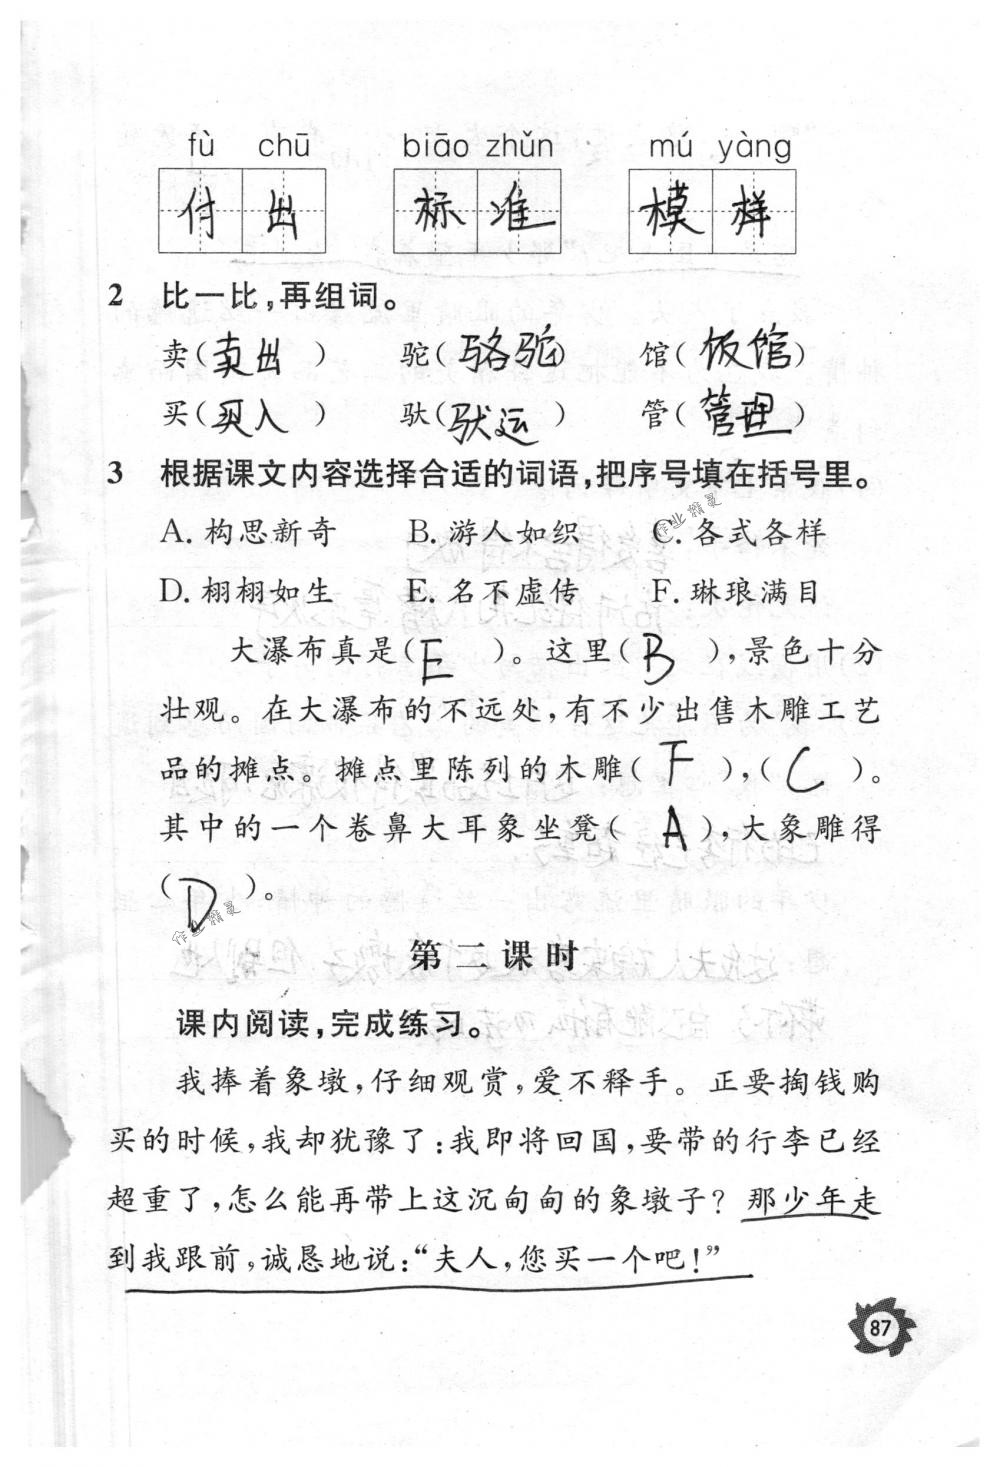 fù chū biāo zhǔn mú yàng
付出 标准 模样
2 比一比，再组词。
卖（卖出） 驼（骆驼） 馆（饭馆）
买（买入） 驮（驮运） 管（管理）
3 根据课文内容选择合适的词语，把序号填在括号里。
A. 构思新奇 B. 游人如织 C. 各式各样
D. 栩栩如生 E. 名不虚传 F. 琳琅满目
大瀑布真是（E）。这里（B），景色十分
壮观。在大瀑布的不远处，有不少出售木雕工艺
品的摊点。摊点里陈列的木雕（F），（C）。
其中的一个卷鼻大耳象坐凳（A），大象雕得
（D）。
作业精灵
作业精灵
第二课时
课内阅读，完成练习。
我捧着象墩，仔细观赏，爱不释手。正要掏钱购
买的时候，我却犹豫了：我即将回国，要带的行李已经
超重了，怎么能再带上这沉甸甸的象墩子？那少年走
到我跟前，诚恳地说：“夫人，您买一个吧！”
87